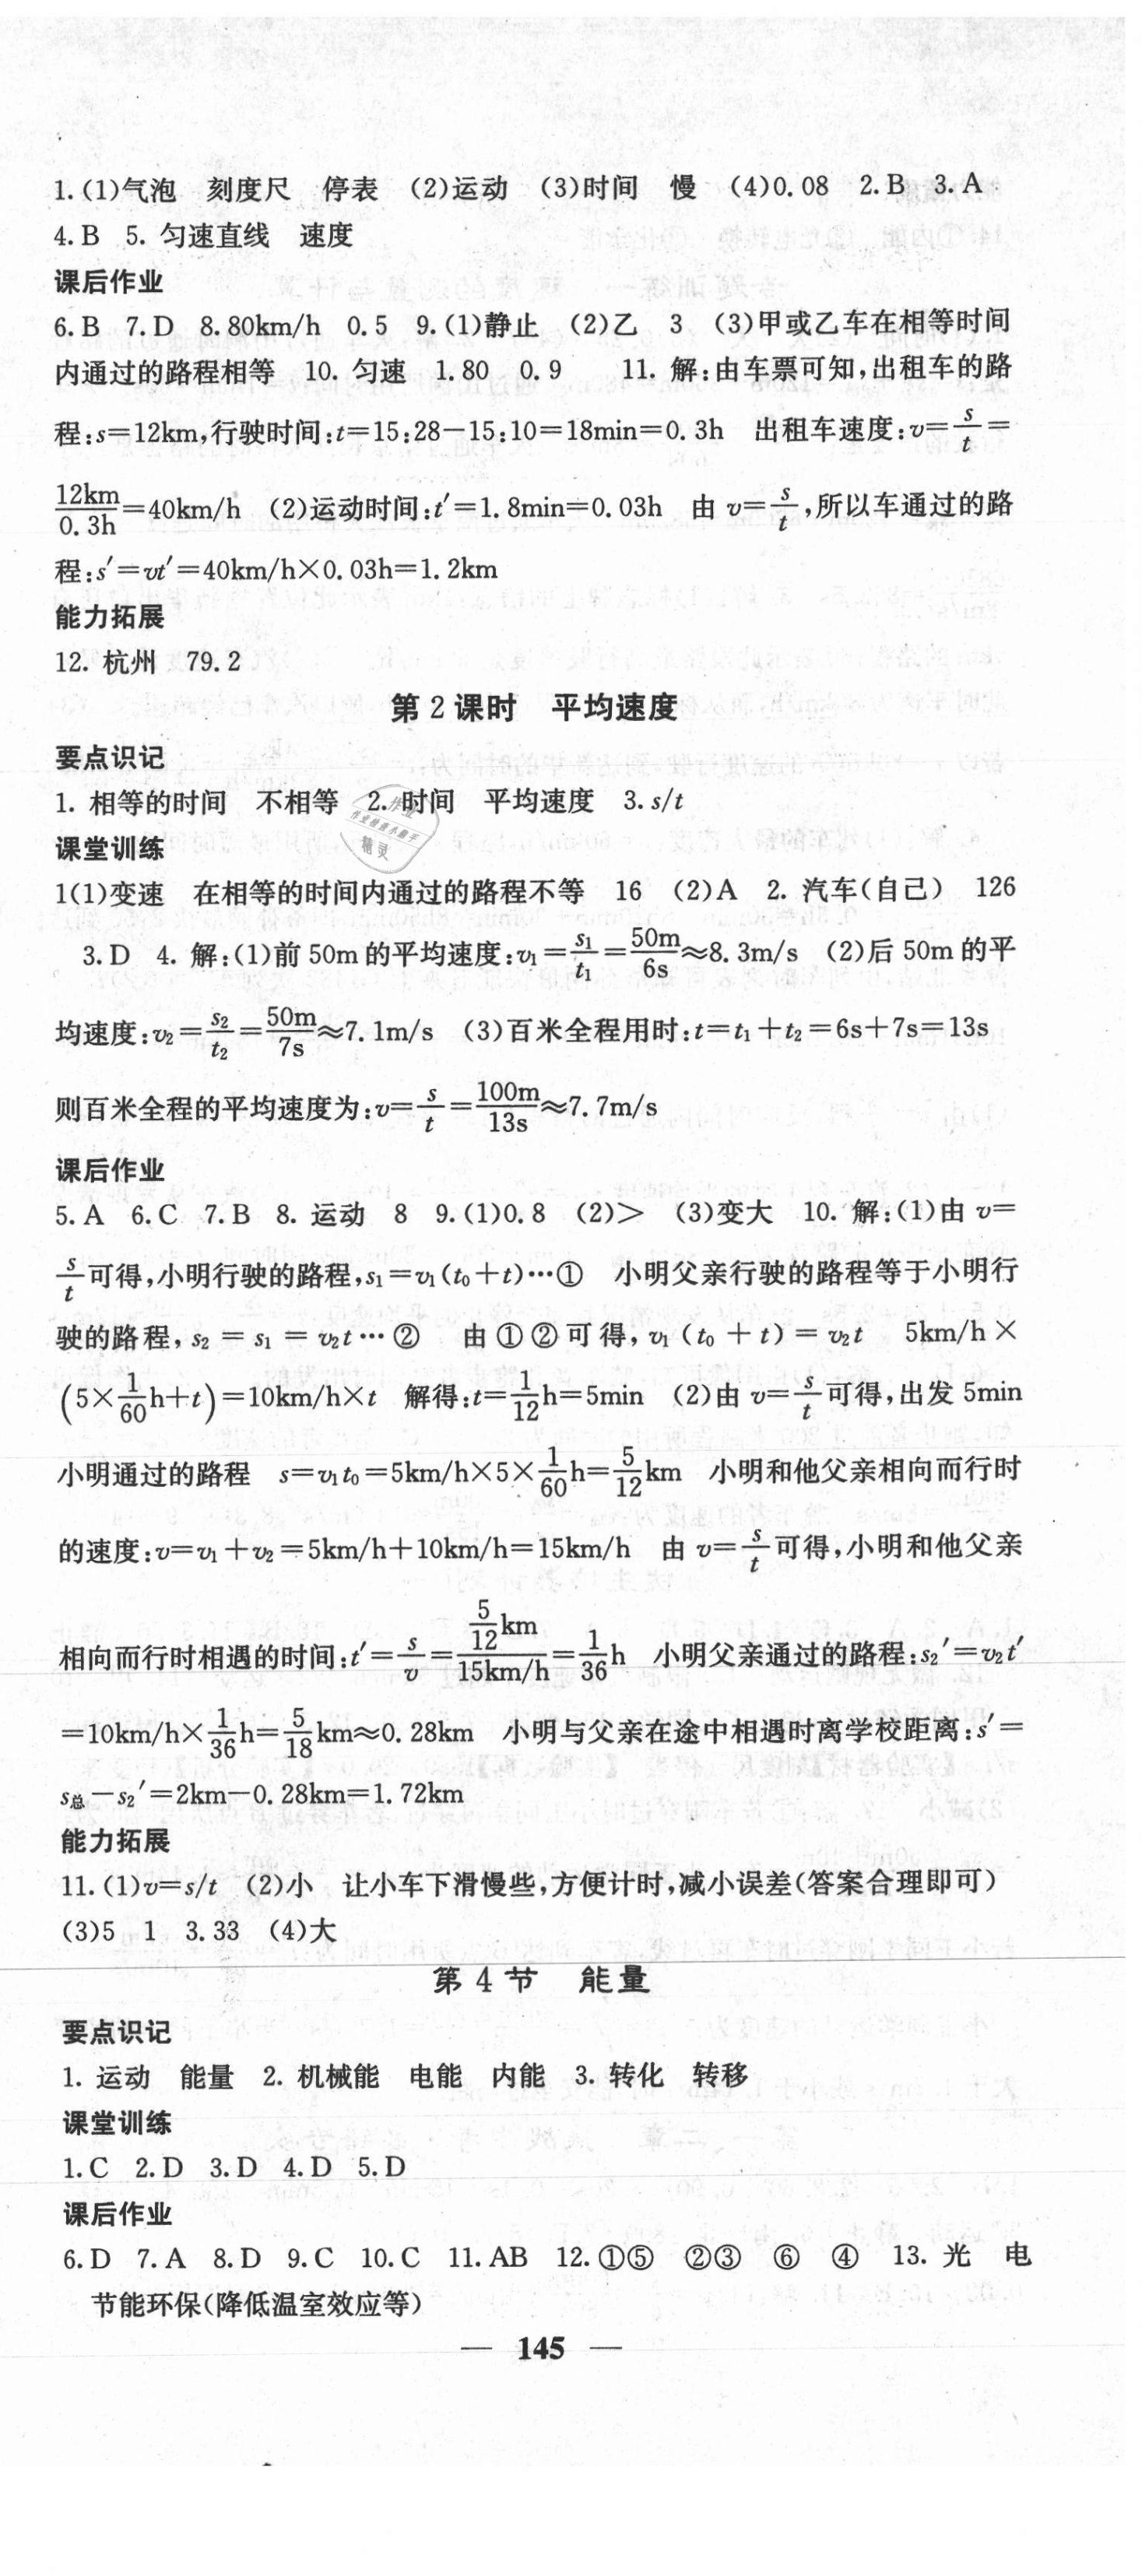 1. (1)气泡 刻度尺 停表 (2)运动 (3)时间 慢 (4)0.08 2. B 3. A
4. B 5. 匀速直线 速度
课后作业
6. B 7. D 8. 80km/h 0.5 9. (1)静止 (2)乙 3 (3)甲或乙车在相等时间
内通过的路程相等 10. 匀速 1.80 0.9 11. 解:由车票可知,出租车的路
程:s=12km,行驶时间:t=15:28-15:10=18min=0.3h 出租车速度:v=s/t=
12km/0.3h=40km/h (2)运动时间:t′=1.8min=0.03h 由 v=s/t,所以车通过的路
程:s′=vt′=40km/h×0.03h=1.2km
能力拓展
12. 杭州 79.2
第2课时 平均速度
要点识记
1. 相等的时间 不相等 2. 时间 平均速度 3. s/t
作业
作业精灵小助手
精灵
课堂训练
1(1)变速 在相等的时间内通过的路程不等 16 (2)A 2. 汽车(自己) 126
3. D 4. 解:(1)前 50m 的平均速度:v₁=s₁/t₁=50m/6s≈8.3m/s (2)后 50m 的平
均速度:v₂=s₂/t₂=50m/7s≈7.1m/s (3)百米全程用时:t=t₁+t₂=6s+7s=13s
则百米全程的平均速度为:v=s/t=100m/13s≈7.7m/s
课后作业
5. A 6. C 7. B 8. 运动 8 9. (1)0.8 (2)> (3)变大 10. 解:(1)由 v=
s/t可得,小明行驶的路程,s₁=v₁(t₀+t)…① 小明父亲行驶的路程等于小明行
驶的路程,s₂=s₁=v₂t…② 由①②可得,v₁(t₀+t)=v₂t 5km/h×
(5×1/60h+t)=10km/h×t 解得:t=1/12h=5min (2)由 v=s/t可得,出发 5min
小明通过的路程 s=v₁t₀=5km/h×5×1/60h=5/12km 小明和他父亲相向而行时
的速度:v=v₁+v₂=5km/h+10km/h=15km/h 由 v=s/t可得,小明和他父亲
相向而行时相遇的时间:t′=s/v=(5/12km)/(15km/h)=1/36h 小明父亲通过的路程:s₂′=v₂t′
=10km/h×1/36h=5/18km≈0.28km 小明与父亲在途中相遇时离学校距离:s′=
s总-s₂′=2km-0.28km=1.72km
能力拓展
11. (1)v=s/t (2)小 让小车下滑慢些,方便计时,减小误差(答案合理即可)
(3)5 1 3.33 (4)大
第4节 能量
要点识记
1. 运动 能量 2. 机械能 电能 内能 3. 转化 转移
课堂训练
1. C 2. D 3. D 4. D 5. D
课后作业
6. D 7. A 8. D 9. C 10. C 11. AB 12. ①⑤ ②③ ⑥ ④ 13. 光 电
节能环保(降低温室效应等)
— 145 —